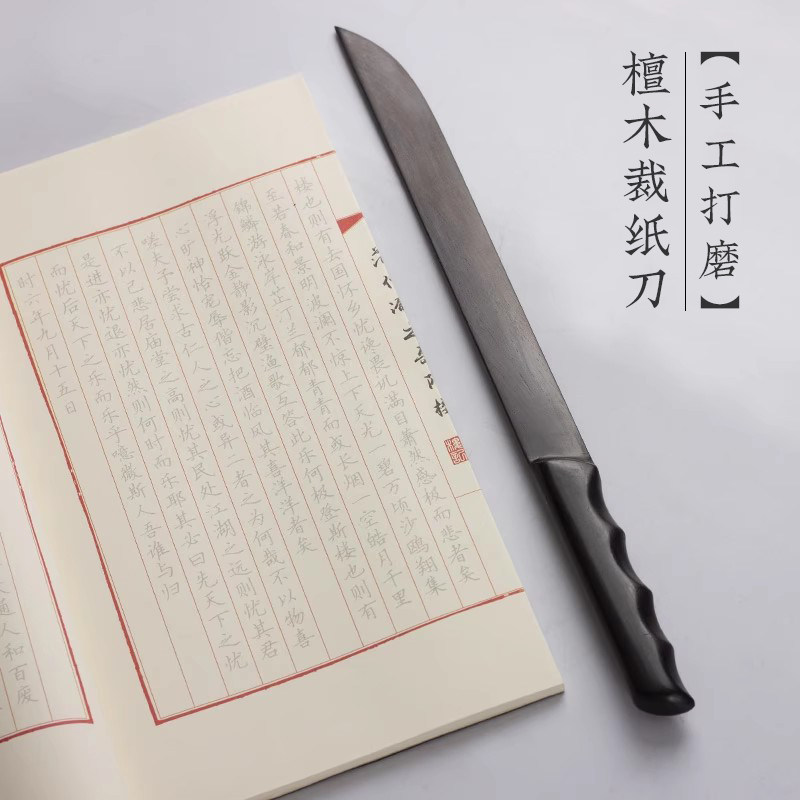 【手工打磨】
檀木裁纸刀
楼也则有去国怀乡忧谗畏讥满目萧然感极而悲者矣
至若春和景明波澜不惊上下天光一碧万顷沙鸥翔集
锦鳞游泳岸芷汀兰郁郁青青而或长烟一空皓月千里
浮光跃金静影沉璧渔歌互答此乐何极登斯楼也则有
心旷神怡宠辱偕忘把酒临风其喜洋洋者矣
嗟夫予尝求古仁人之心或异二者之为何哉不以物喜
不以己悲居庙堂之高则忧其民处江湖之远则忧其君
是进亦忧退亦忧然则何时而乐耶其必曰先天下之忧
而忧后天下之乐而乐乎噫微斯人吾谁与归
时六年九月十五日
通人和百废